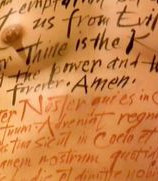 temptation
us from Evil
Thine is the K
the power and
forever. Amen.
Noster qui es in C
Tuum Adveniat regnu
tua sicut in Coelo et
panem nostrum quotid
et dimitte nobis